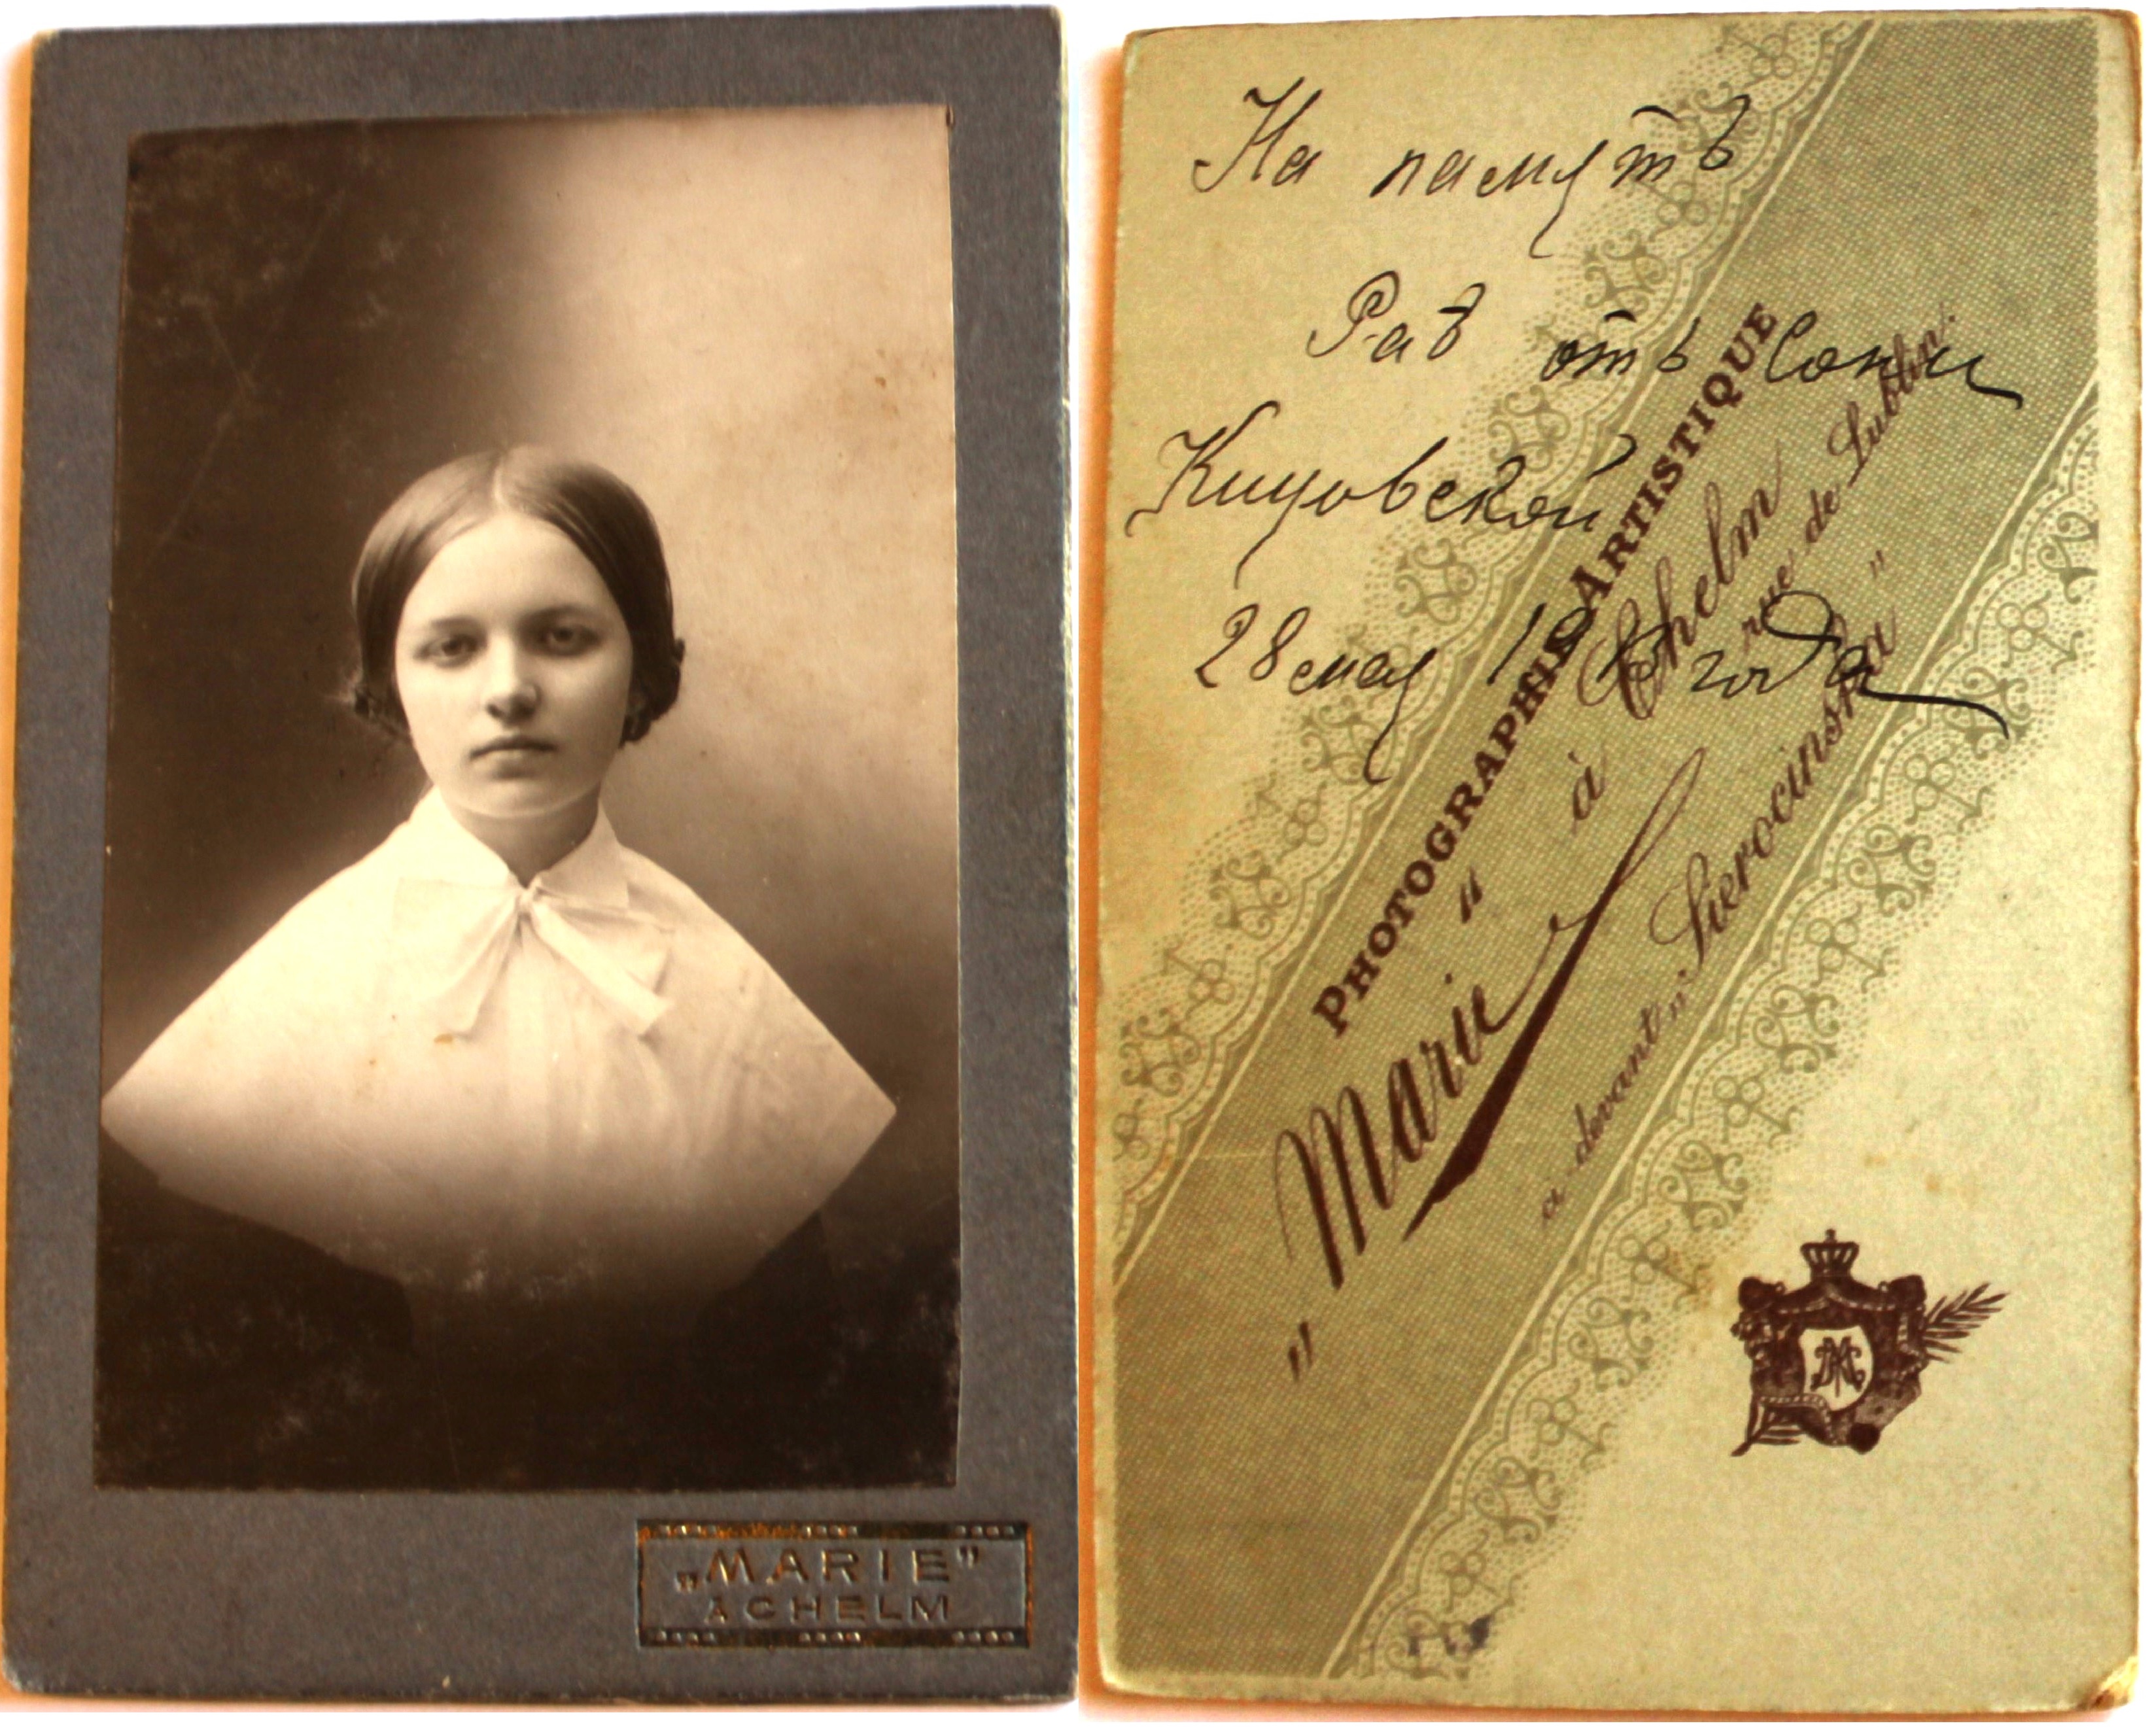 „MARIE”
À CHELM
На память
Рав отъ Сони
Кицовской
28 мая 19 года
PHOTOGRAPHIE ARTISTIQUE
„Marie” à Chelm
rue de Lublin.
a devant „Sierocinska”